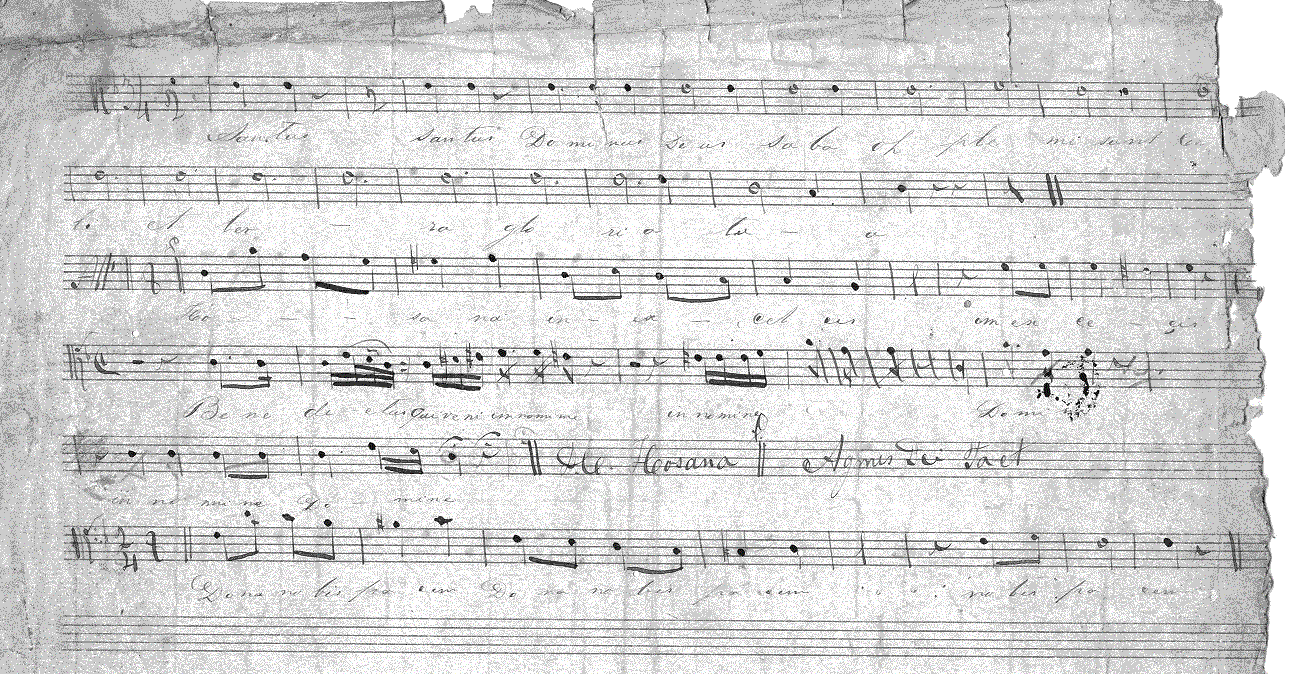 Santus santus Dominus Deus saba oth ple ni sunt coe
li et ter - ra glo ri a tu - a
Ho - - - sa na in - ex - cel cis in ex ce - cis
Be ne di ctus qui venit in nomine in nomine Domi
in no mine Do - mine Al Hosana Agnus Dei Tacet
Dona no bis pa cem Do na no bis pa cem no bis pa cem